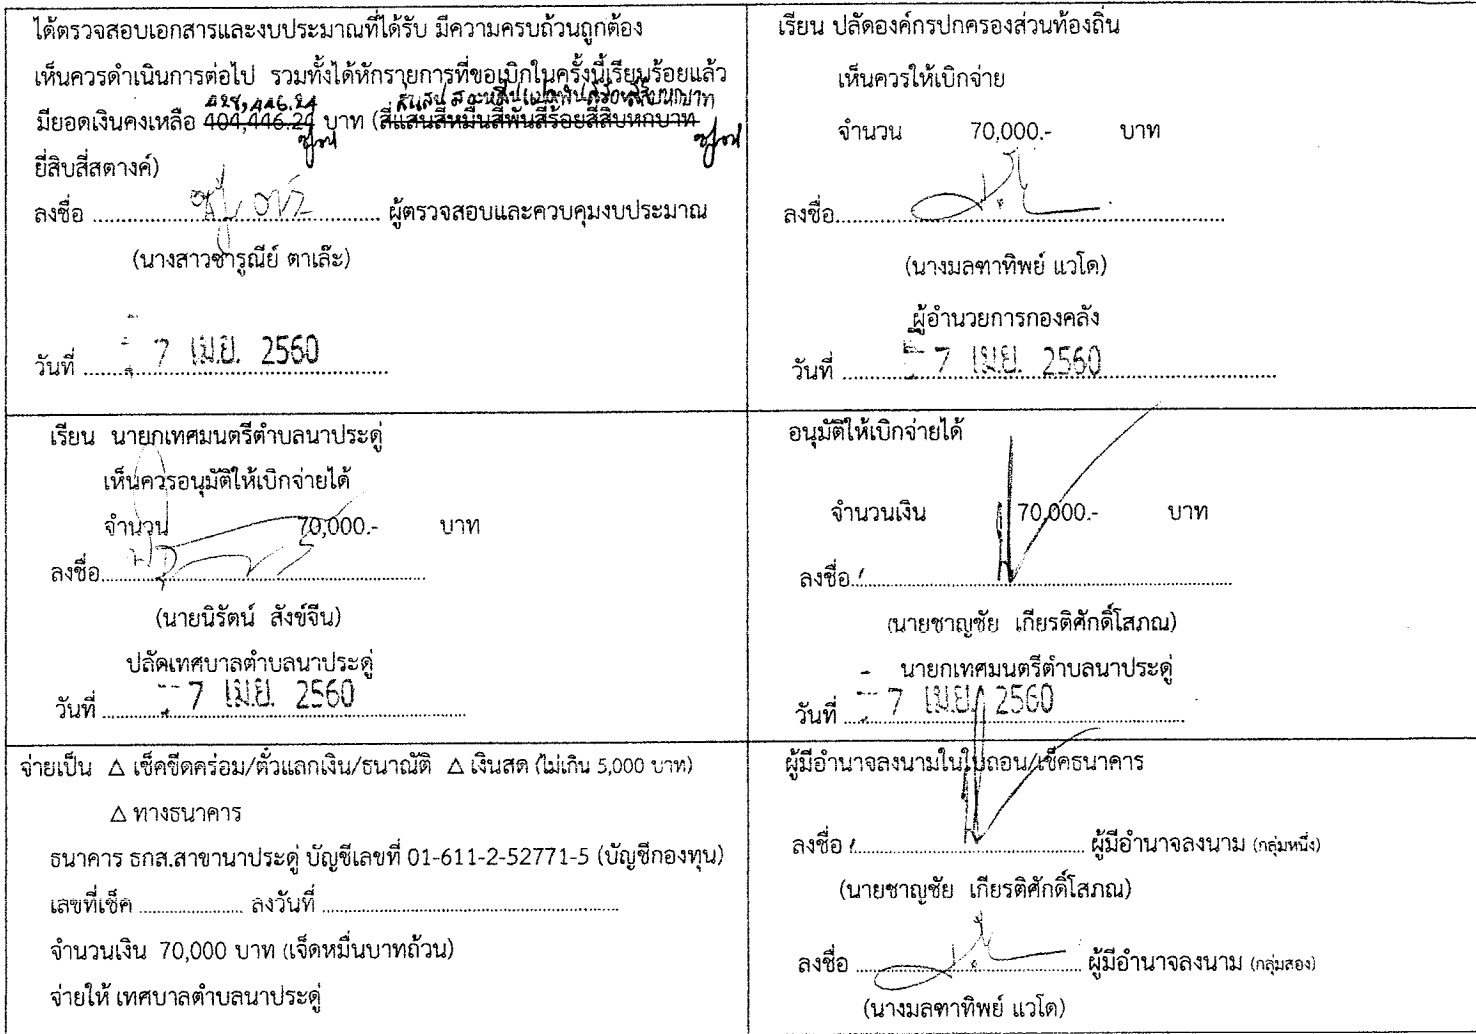 ได้ตรวจสอบเอกสารและงบประมาณที่ได้รับ มีความครบถ้วนถูกต้อง
เห็นควรดำเนินการต่อไป รวมทั้งได้หักรายการที่ขอเบิกในครั้งนี้เรียบร้อยแล้ว
มียอดเงินคงเหลือ 404,446.24 บาท (สี่แสนสี่หมื่นสี่พันสี่ร้อยสี่สิบหกบาท
ยี่สิบสี่สตางค์)
ลงชื่อ ........ ผู้ตรวจสอบและควบคุมงบประมาณ
(นางสาวซารูณีย์ ตาเล๊ะ)
วันที่ 7 เม.ย. 2560
เรียน ปลัดองค์กรปกครองส่วนท้องถิ่น
เห็นควรให้เบิกจ่าย
จำนวน 70,000.- บาท
ลงชื่อ........
(นางมลฑาทิพย์ แวโด)
ผู้อำนวยการกองคลัง
วันที่ 7 เม.ย. 2560
เรียน นายกเทศมนตรีตำบลนาประดู่
เห็นควรอนุมัติให้เบิกจ่ายได้
จำนวน 70,000.- บาท
ลงชื่อ........
(นายนิรัตน์ สังข์จีน)
ปลัดเทศบาลตำบลนาประดู่
วันที่ 7 เม.ย. 2560
อนุมัติให้เบิกจ่ายได้
จำนวนเงิน 70,000.- บาท
ลงชื่อ........
(นายชาญชัย เกียรติศักดิ์โสภณ)
นายกเทศมนตรีตำบลนาประดู่
วันที่ 7 เม.ย. 2560
จ่ายเป็น △ เช็คขีดคร่อม/ตั๋วแลกเงิน/ธนาณัติ △ เงินสด (ไม่เกิน 5,000 บาท)
△ ทางธนาคาร
ธนาคาร ธกส.สาขานาประดู่ บัญชีเลขที่ 01-611-2-52771-5 (บัญชีกองทุน)
เลขที่เช็ค ........ ลงวันที่ ........
จำนวนเงิน 70,000 บาท (เจ็ดหมื่นบาทถ้วน)
จ่ายให้ เทศบาลตำบลนาประดู่
ผู้มีอำนาจลงนามในใบถอน/เช็คธนาคาร
ลงชื่อ ........ ผู้มีอำนาจลงนาม (กลุ่มหนึ่ง)
(นายชาญชัย เกียรติศักดิ์โสภณ)
ลงชื่อ ........ ผู้มีอำนาจลงนาม (กลุ่มสอง)
(นางมลฑาทิพย์ แวโด)